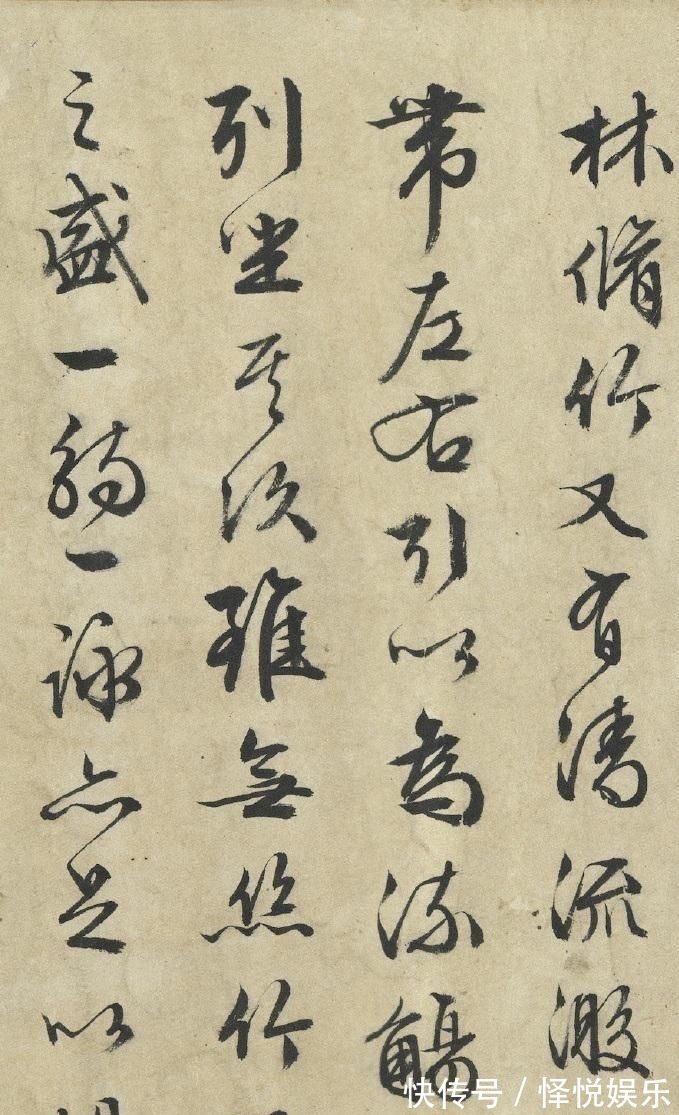 林脩竹又有清流激
帶左右引以為流觴
列坐其次雖無絲竹
之盛一觴一詠亦足以
快传号 / 怿悦娱乐